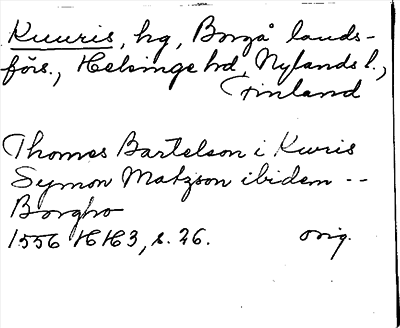 Kuuris, hg, Borgå lands-
förs., Helsinge hd, Nylands l.,
Finland
Thomes Bartelson i Kwris
Symon Matzson ibidem --
Borgho
1556 HH3, s. 26. orig.